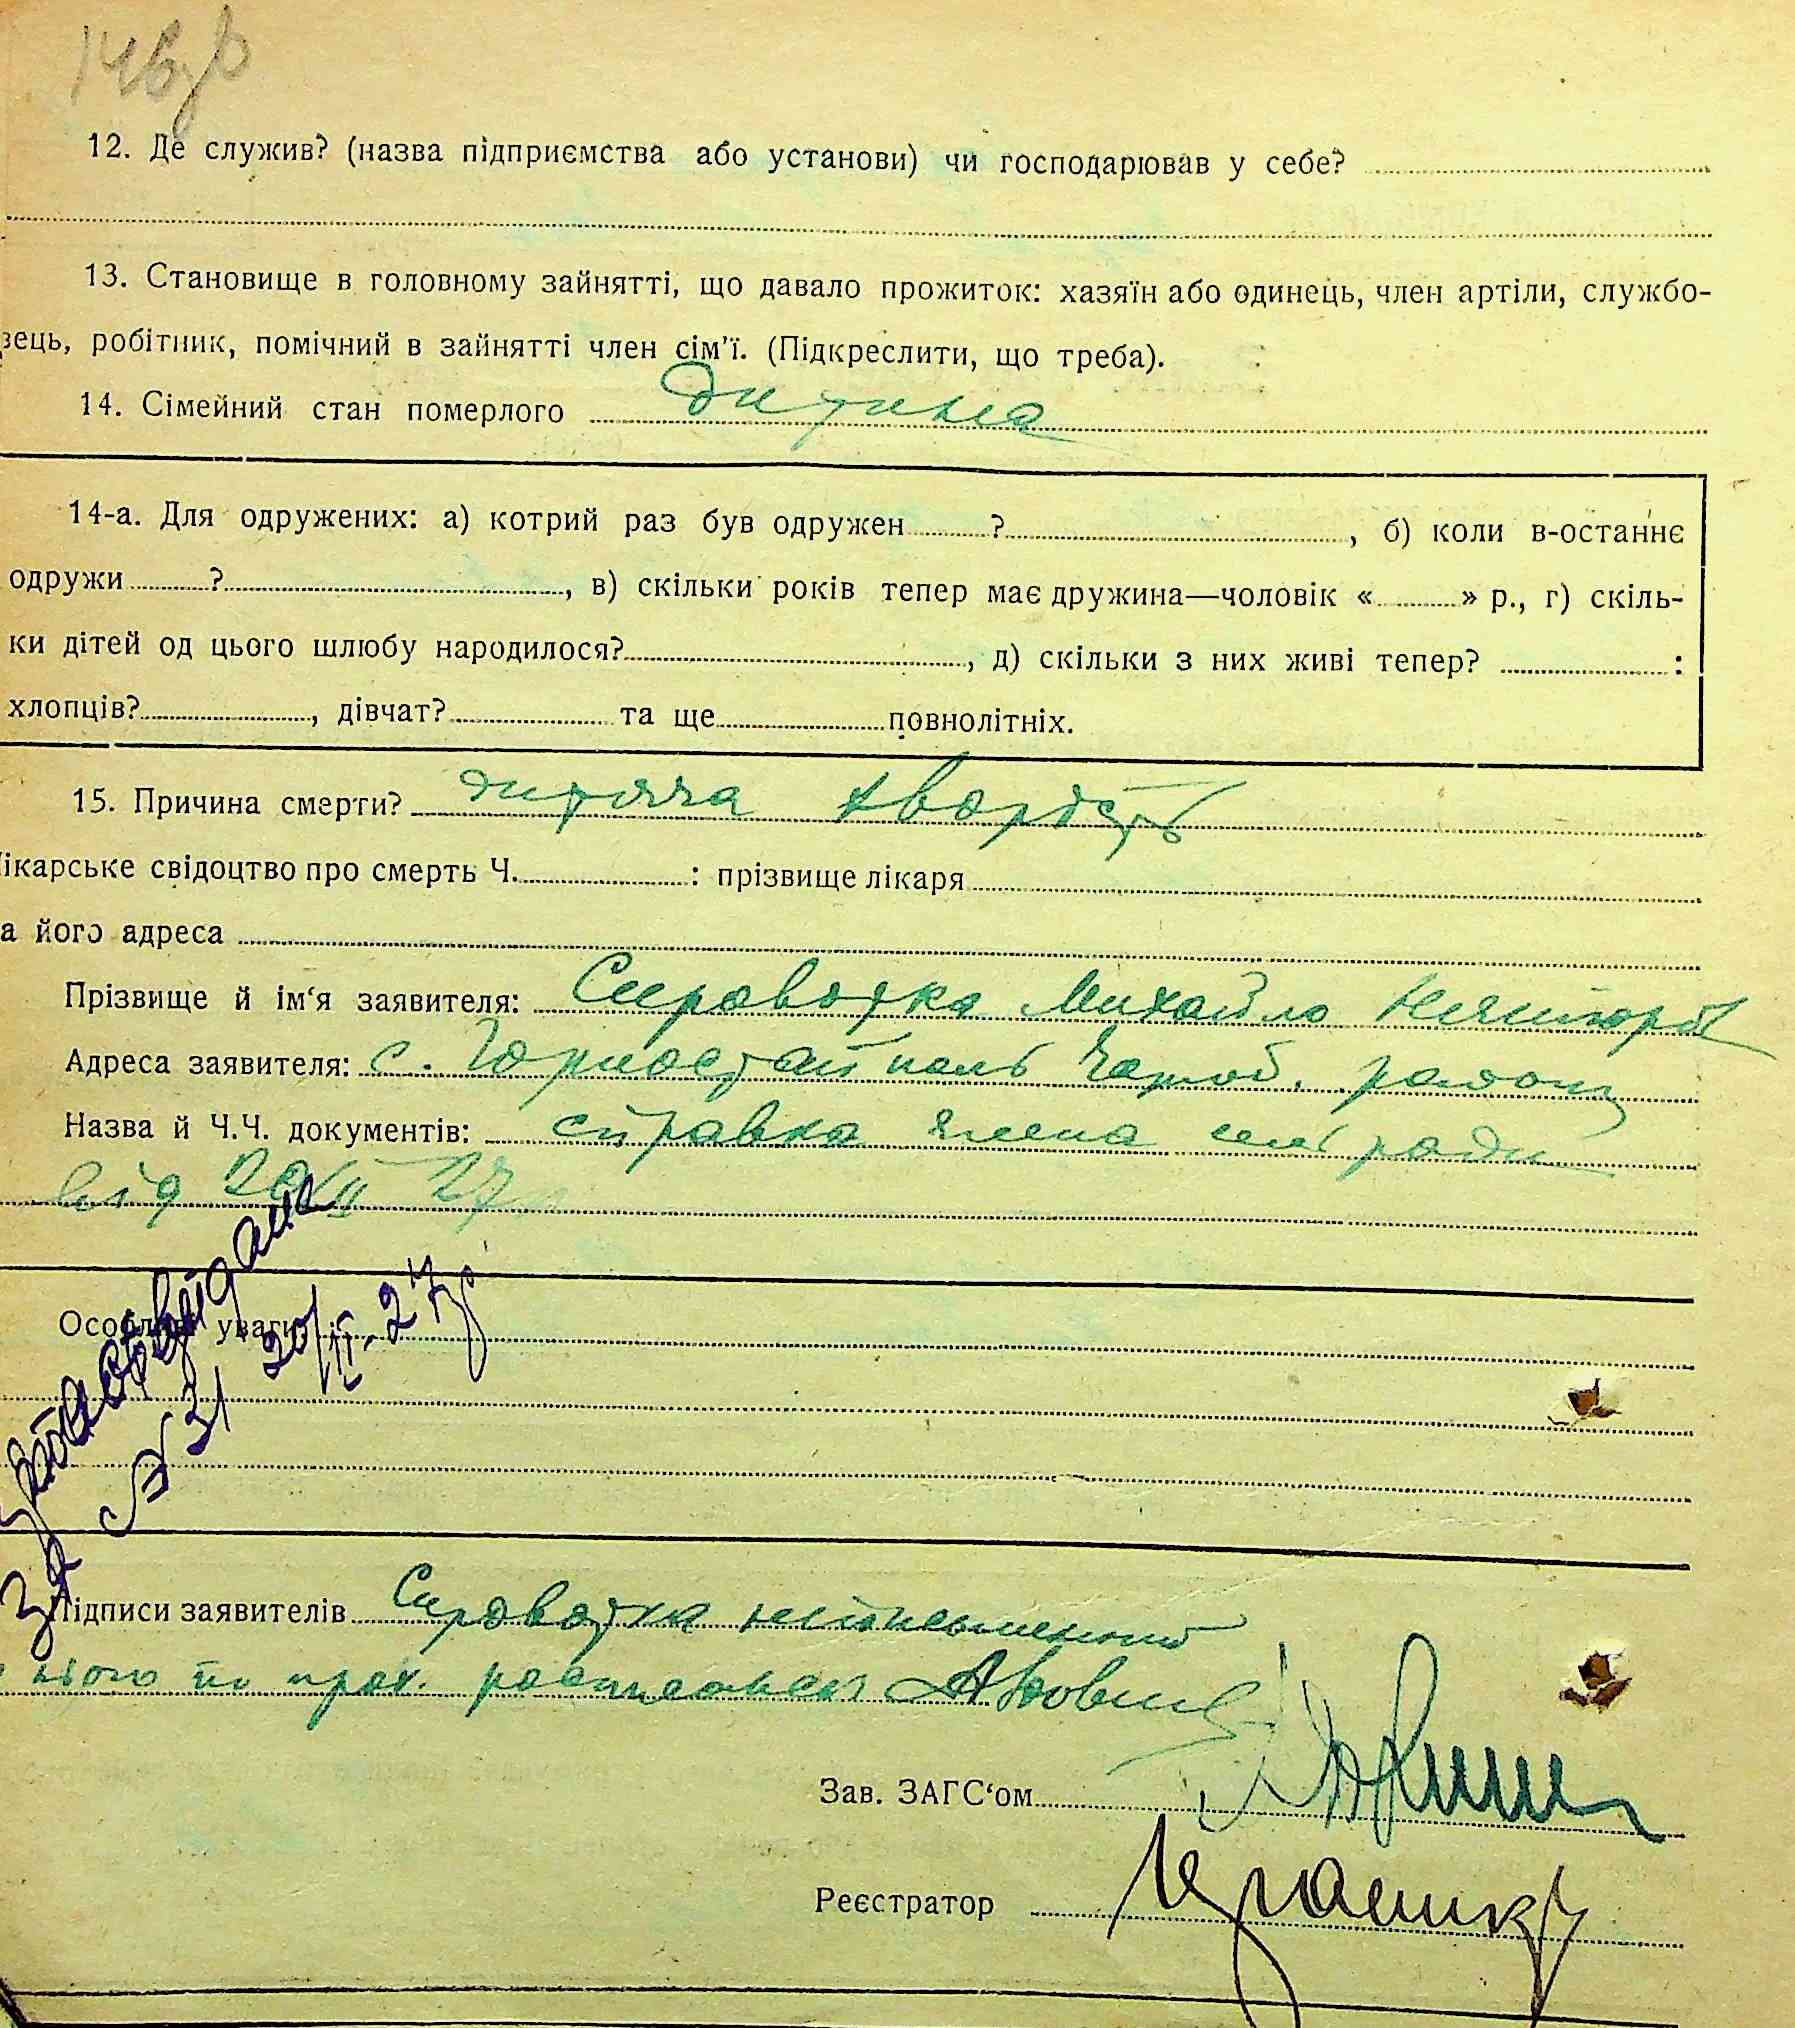 12. Де служив? (назва підприємства або установи) чи господарював у себе?
13. Становище в головному зайнятті, що давало прожиток: хазяїн або одинець, член артіли, службо-
вець, робітник, помічний в зайнятті член сім'ї. (Підкреслити, що треба).
14. Сімейний стан померлого дитина
14-а. Для одружених: а) котрий раз був одружен ? , б) коли в-останнє
одружи ? , в) скільки років тепер має дружина—чоловік « » р., г) скіль-
ки дітей од цього шлюбу народилося? , д) скільки з них живі тепер? :
хлопців? , дівчат? та ще повнолітніх.
15. Причина смерти? дитяча хворість
ікарське свідоцтво про смерть Ч. : прізвище лікаря
а його адреса
Прізвище й ім'я заявителя: Сироватка Михайло
Адреса заявителя: с. Горностайполь району
Назва й Ч.Ч. документів: справка сельради
від 20/II 27
Особливі уваги
за № 31 20/II-27р
Підписи заявителів Сироватка неписьменний
нього по прох.
Зав. ЗАГС'ом
Реєстратор